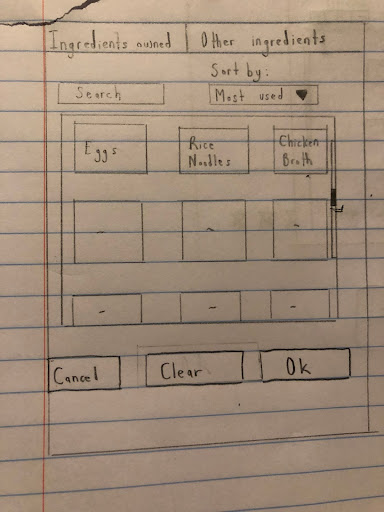 Ingredients owned | Other ingredients
Sort by:
Search
Most used
Eggs
Rice
Noodles
Chicken
Broth
~
~
~
~
~
~
Cancel
Clear
Ok